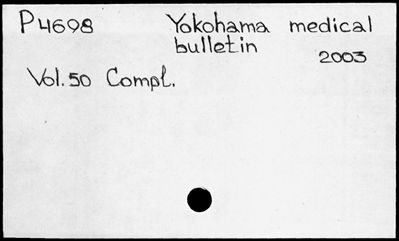 P4698 Yokohama medical
bulletin
2003
Vol.50 Compl.